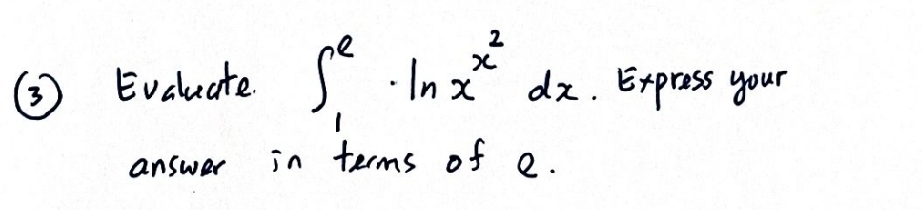 ③ Evaluate. ∫₁ᵉ · ln x^{x^2} dx. Express your
answer in terms of e.